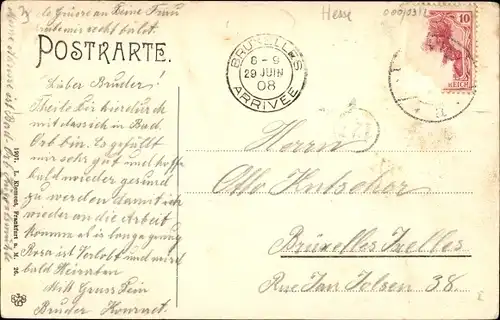 Hesse
viele Grüsse an Deine Frau
schreibe mir recht bald.
POSTKARTE.
BRUXELLES
6-9
29 JUIN
08
ARRIVEE
10
REICH
Lieber Bruder!
Theile Dir hierdurch
mit dass ich in Bad
Orb bin. Es gefällt
mir sehr gut und hoffe
bald wieder gesund
zu werden damit ich
wieder an die Arbeit
komme als in lange genug
Rosa ist Verlobt und wird
bald Heiraten
Mit Gruss Dein
Bruder
Herrn
Otto
Brüxelles Ixelles
Rue Jan 38.
1907. L. Klement, Frankfurt a. M. 26.